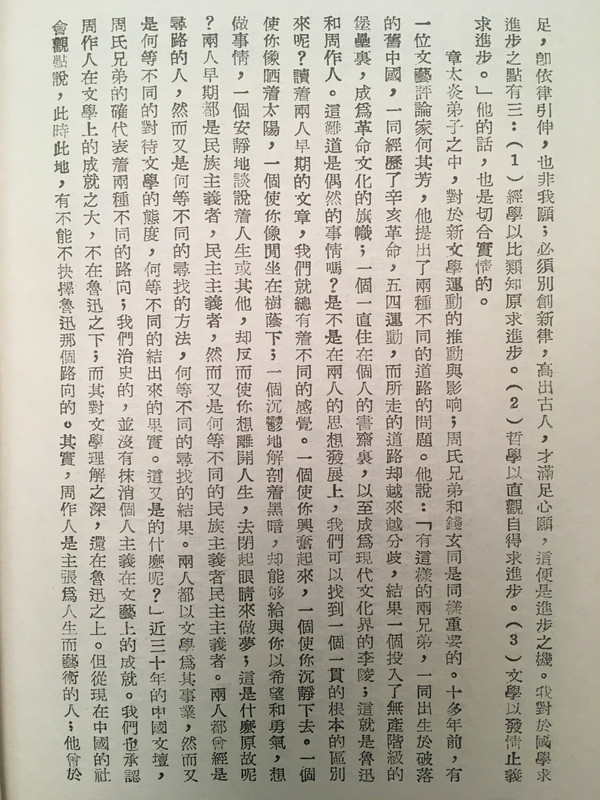 足，卽依律引伸，也非我願；必須別創新律，高出古人，才滿足心願，這便是進步之機。我對於國學求
進步之點有三：（1）經學以比類知原求進步。（2）哲學以直觀自得求進步。（3）文學以發情止義
求進步。」他的話，也是切合實情的。
章太炎弟子之中，對於新文學運動的推動與影响；周氏兄弟和錢玄同是同樣重要的。十多年前，有
一位文藝評論家何其芳，他提出了兩種不同的道路的問題。他說：「有這樣的兩兄弟，一同出生於破落
的舊中國，一同經歷了辛亥革命，五四運動，而所走的道路却越來越分歧，結果一個投入了無產階級的
堡壘裏，成爲革命文化的旗幟；一個一直住在個人的書齋裏，以至成爲現代文化界的李陵；這就是魯迅
和周作人。這難道是偶然的事情嗎？是不是在兩人的思想發展上，我們可以找到一個一貫的根本的區別
來呢？讀着兩人早期的文章，我們就總有着不同的感覺。一個使你興奮起來，一個使你沉靜下去。一個
使你像晒着太陽，一個使你像閒坐在樹蔭下；一個沉鬱地解剖着黑暗，却能够給與你以希望和勇氣，想
做事情，一個安靜地談說着人生或其他，却反而使你想離開人生，去閉起眼睛來做夢；這是什麼原故呢
？兩人早期都是民族主義者，民主主義者，然而又是何等不同的民族主義者民主主義者。兩人都曾經是
尋路的人，然而又是何等不同的尋找的方法，何等不同的尋找的結果。兩人都以文學爲其事業，然而又
是何等不同的對待文學的態度，何等不同的結出來的果實。這又是的什麼呢？」近三十年的中國文壇，
周氏兄弟的確代表着兩種不同的路向；我們治史的，並沒有抹消個人主義在文藝上的成就。我們也承認
周作人在文學上的成就之大，不在魯迅之下；而其對文學理解之深，還在魯迅之上。但從現在中國的社
會觀點說，此時此地，有不能不抉擇魯迅那個路向的。其實，周作人是主張爲人生而藝術的人；他曾於